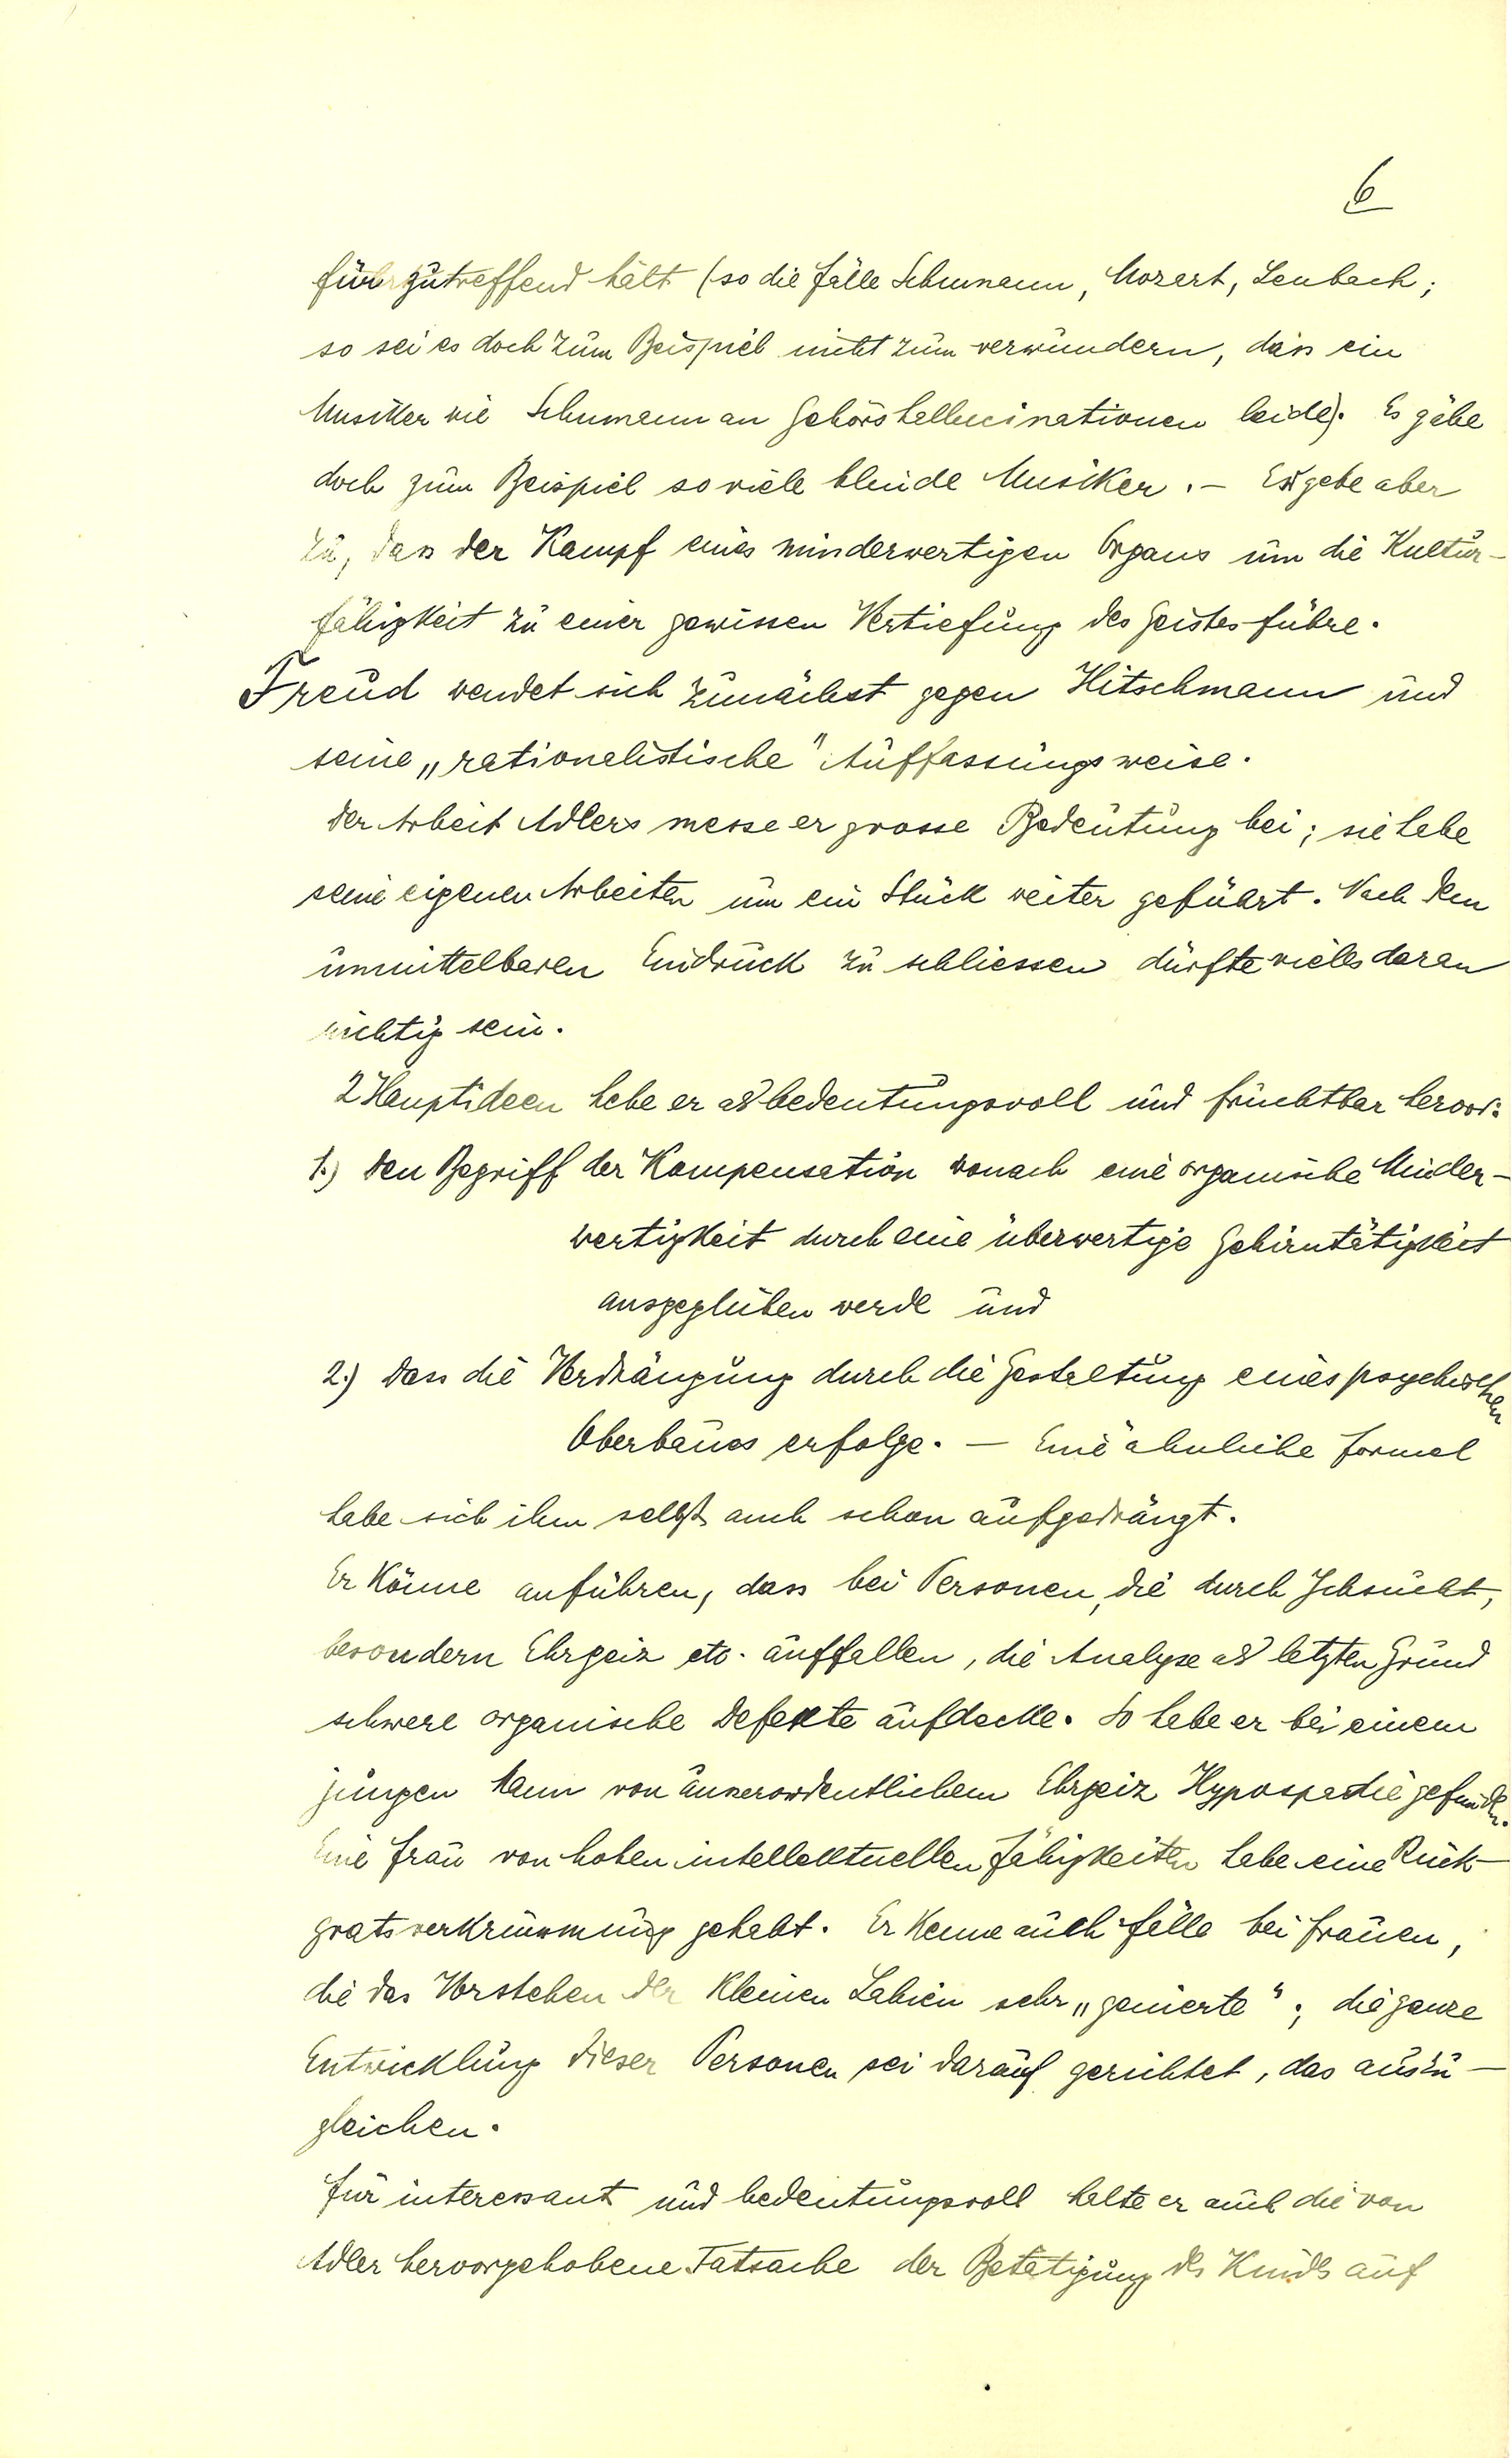 6
für zutreffend hält (so die Fälle Schumann, Mozart, Lenbach;
so sei es doch zum Beispiel nicht zum verwundern, dass ein
Musiker wie Schumann an Gehörshallucinationen leide). Es gäbe
doch zum Beispiel so viele blinde Musiker. – Er gebe aber
zu, dass der Kampf eines minderwertigen Organs um die Kultur-
fähigkeit zu einer gewissen Vertiefung des Geistes führe.
Freud wendet sich zunächst gegen Hitschmann und
seine „rationalistische" Auffassungsweise.
Der Arbeit Adlers messe er grosse Bedeutung bei; sie habe
seine eigenen Arbeiten um ein Stück weiter geführt. Nach dem
unmittelbaren Eindruck zu schliessen dürfte vieles daran
richtig sein.
2 Hauptideen hebe er als bedeutungsvoll und fruchtbar hervor:
1.) den Begriff der Kompensation wonach eine organische Minder-
wertigkeit durch eine überwertige Gehirntätigkeit
ausgeglichen werde und
2.) dass die Verdrängung durch die Gestaltung eines psychischen
Oberbaues erfolge. – Eine ähnliche Formel
habe sich ihm selbst auch schon aufgedrängt.
Er könne anführen, dass bei Personen, die durch Ichsucht,
besondern Ehrgeiz etc. auffallen, die Analyse als letzten Grund
schwere organische Defekte aufdecke. So habe er bei einem
jungen Mann von ausserordentlichem Ehrgeiz Hypospadie gefunden.
Eine Frau von hohen intellektuellen Fähigkeiten habe eine Rück-
gratsverkrümmung gehabt. Er kenne auch Fälle bei Frauen,
die das Vorstehen der kleinen Labien sehr „genierte"; die ganze
Entwicklung dieser Personen sei darauf gerichtet, das auszu-
gleichen.
Für interessant und bedeutungsvoll halte er auch die von
Adler hervorgehobene Tatsache der Betätigung des Kindes auf